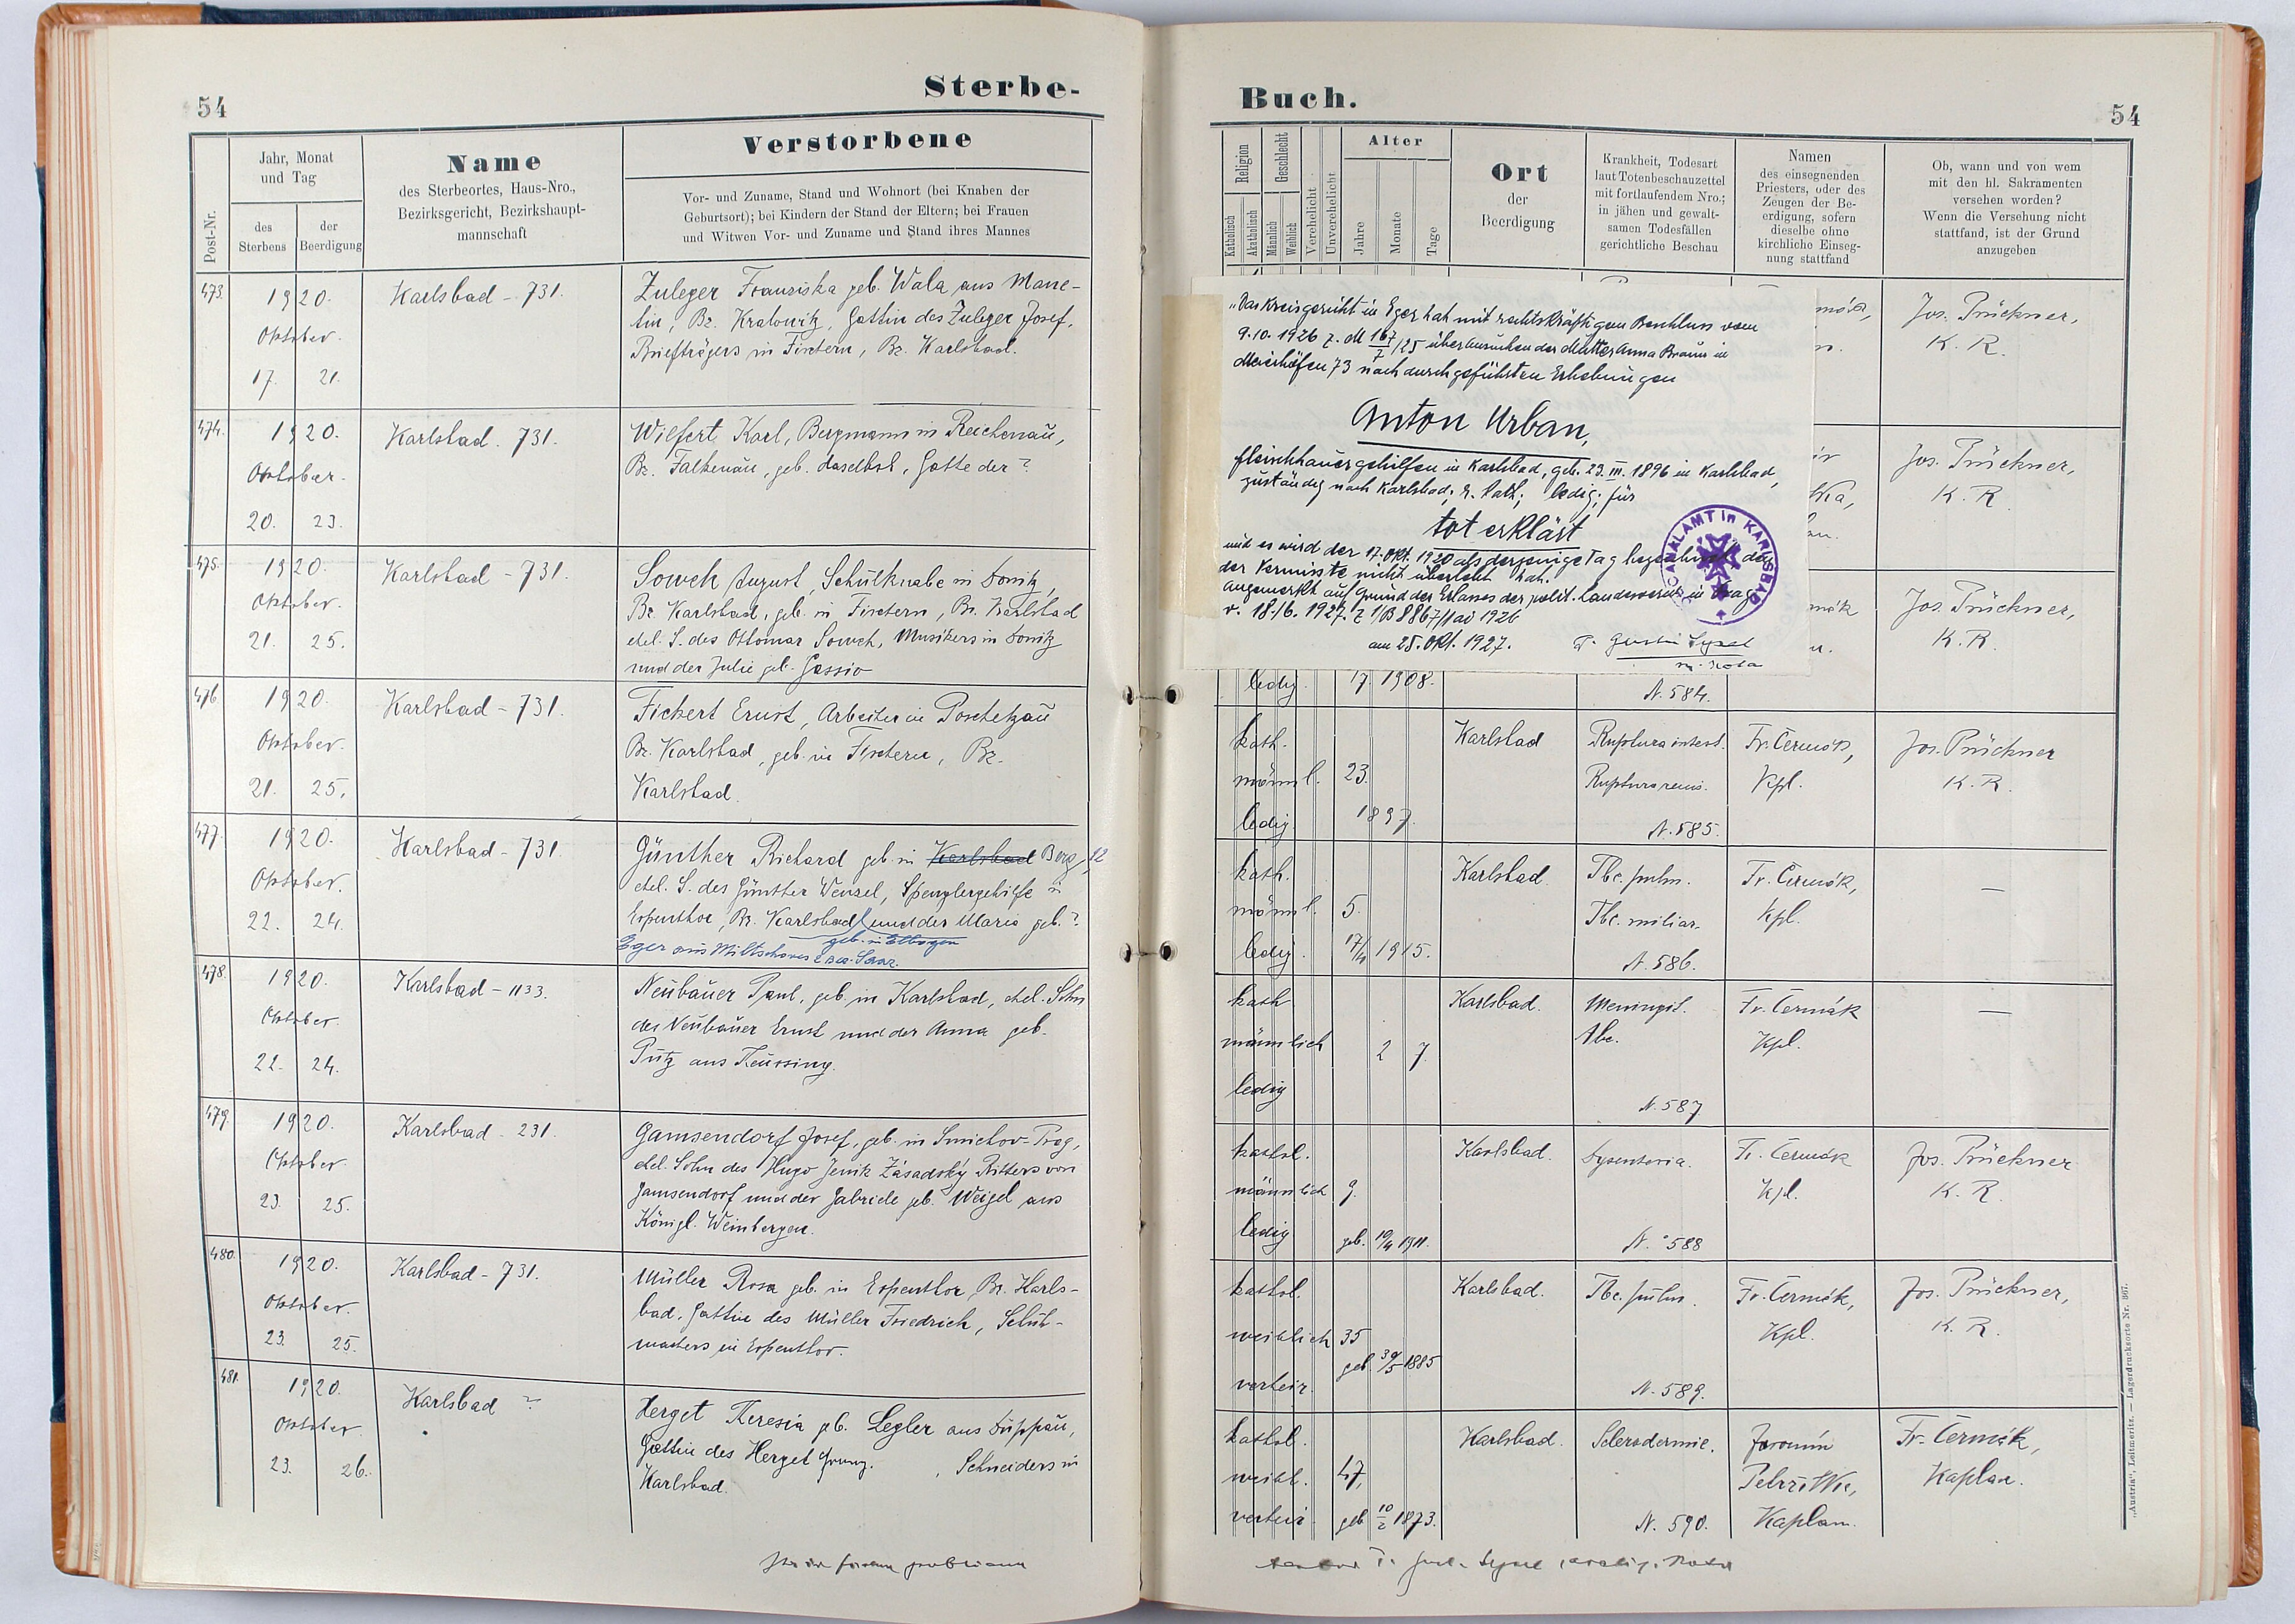 54
Sterbe-
Post-Nr.
Jahr, Monat
und Tag
des
Sterbens
der
Beerdigung
Name
des Sterbeortes, Haus-Nro.,
Bezirksgericht, Bezirkshaupt-
mannschaft
Verstorbene
Vor- und Zuname, Stand und Wohnort (bei Knaben der
Geburtsort); bei Kindern der Stand der Eltern; bei Frauen
und Witwen Vor- und Zuname und Stand ihres Mannes
473.
1920.
Oktober.
17. 21.
Karlsbad - 731.
Zuleger Franziska geb. Wala aus Mane-
tin, Bz. Kralowitz, Gattin des Zuleger Josef,
Briefträgers in Fischern, Bz. Karlsbad.
474.
1920.
Oktober.
20. 23.
Karlsbad. 731.
Wilfert Karl, Bergmann in Reichenau,
Bz. Falkenau, geb. daselbst, Gatte der ?
475.
1920.
Oktober.
21. 25.
Karlsbad - 731.
Soweh August, Schulknabe in Donitz,
Bz. Karlsbad, geb. in Fischern, Bz. Karlsbad
ehel. S. des Ottomar Soweh, Musikers in Donitz
und der Julie geb. Gassio
476
1920.
Oktober.
21. 25.
Karlsbad - 731.
Fickert Ernst, Arbeiter in Poschetzau
Bz. Karlsbad, geb. in Fischern, Bz.
Karlsbad.
477.
1920.
Oktober.
22. 24.
Karlsbad - 731.
Günther Richard geb. in Karlsbad Berg, 12
ehel. S. des Günther Wenzel, Spenglergehilfe in
Espenthor, Bz. Karlsbad und der Maria geb. ?
geb. in Elbogen
Eger aus Miltschoves Bez. Saaz.
478.
1920.
Oktober.
22. 24.
Karlsbad - 1133.
Neubauer Paul, geb. in Karlsbad, ehel. Sohn
des Neubauer Ernst und der Anna geb.
Pütz aus Theussing.
479.
1920.
Oktober
23. 25.
Karlsbad - 231.
Gamsendorf Josef, geb. in Smichov-Prag,
ehel. Sohn des Hugo Jenik Zásadský Ritters von
Gamsendorf und der Gabriele geb. Weigel aus
Königl. Weinbergen.
480.
1920.
Oktober.
23. 25.
Karlsbad - 731.
Müller Rosa geb. in Espenthor, Bz. Karls-
bad, Gattin des Müller Friedrich, Schuh-
machers in Espenthor.
481.
1920.
Oktober
23. 26.
Karlsbad ?
Herget Theresia geb. Legler aus Duppau,
Gattin des Herget Franz, Schneiders in
Karlsbad.
Buch.
54
Religion
Katholisch
Akatholisch
Geschlecht
Männlich
Weiblich
Verehelicht
Unverehelicht
Alter
Jahre
Monate
Tage
Ort
der
Beerdigung
Krankheit, Todesart
laut Totenbeschauzettel
mit fortlaufendem Nro.;
in jähen und gewalt-
samen Todesfällen
gerichtliche Beschau
Namen
des einsegnenden
Priesters, oder des
Zeugen der Be-
erdigung, sofern
dieselbe ohne
kirchliche Einseg-
nung stattfand
Ob, wann und von wem
mit den hl. Sakramenten
versehen worden?
Wenn die Versehung nicht
stattfand, ist der Grund
anzugeben
"Das Kreisgericht in Eger hat mit rechtskräftigem Beschluss vom
9.10.1926 z. M 167/7/25 über Ansuchen der Mutter Anna Braun in
Meierhöfen 73 nach durchgeführten Erhebungen
Anton Urban,
Fleischhauergehilfen in Karlsbad, geb. 23.III.1896 in Karlsbad,
zuständig nach Karlsbad, r. kath; ledig; für
tot erklärt
und es wird der 17. Okt. 1920 als derjenige Tag bezeichnet, den
der Vermisste nicht überlebt hat.
Angemerkt auf Grund des Erlasses der polit. Landesverw. in Prag
v. 18./6. 1927. Z 1/B 8867/1 ai 1926
am 25. Okt. 1927.
ANALAMT in KARLSBAD
Jos. Prückner,
K. R.
Jos. Prückner,
K. R.
Jos. Prückner,
K. R.
ledig. 17. 1908.
N. 584.
kath.
männl. 23.
ledig 1897.
Karlsbad
Ruptura intest.
Ruptura renis.
N. 585.
Fr. Čermák,
Kpl.
Jos. Prückner
K. R.
kath.
männl. 5.
ledig. 17/4 1915.
Karlsbad.
Tbc. pulm.
Tbc. miliar.
N. 586.
Fr. Čermák,
Kpl.
—
kath
männlich 2 7.
ledig
Karlsbad.
Meningit.
tbc.
N. 587
Fr. Čermák
Kpl.
—
kathol.
männlich 9.
ledig geb. 19/4 1911.
Karlsbad.
Dysenteria.
N. 588
Fr. Čermák
Kpl.
Jos. Prückner
K. R.
kathol.
weiblich 35
geb 30/5 1885
verheir.
Karlsbad.
Tbc. pulm.
N. 589.
Fr. Čermák,
Kpl.
Jos. Prückner,
K. R.
kathol.
weibl. 47,
verheir. geb 10/2 1873.
Karlsbad.
Sclerodermie.
N. 590.
Jaromín
Kaplan.
Fr. Čermák,
Kaplan.
"Austria", Leitmeritz. — Lagerdrucksorte Nr. 307.